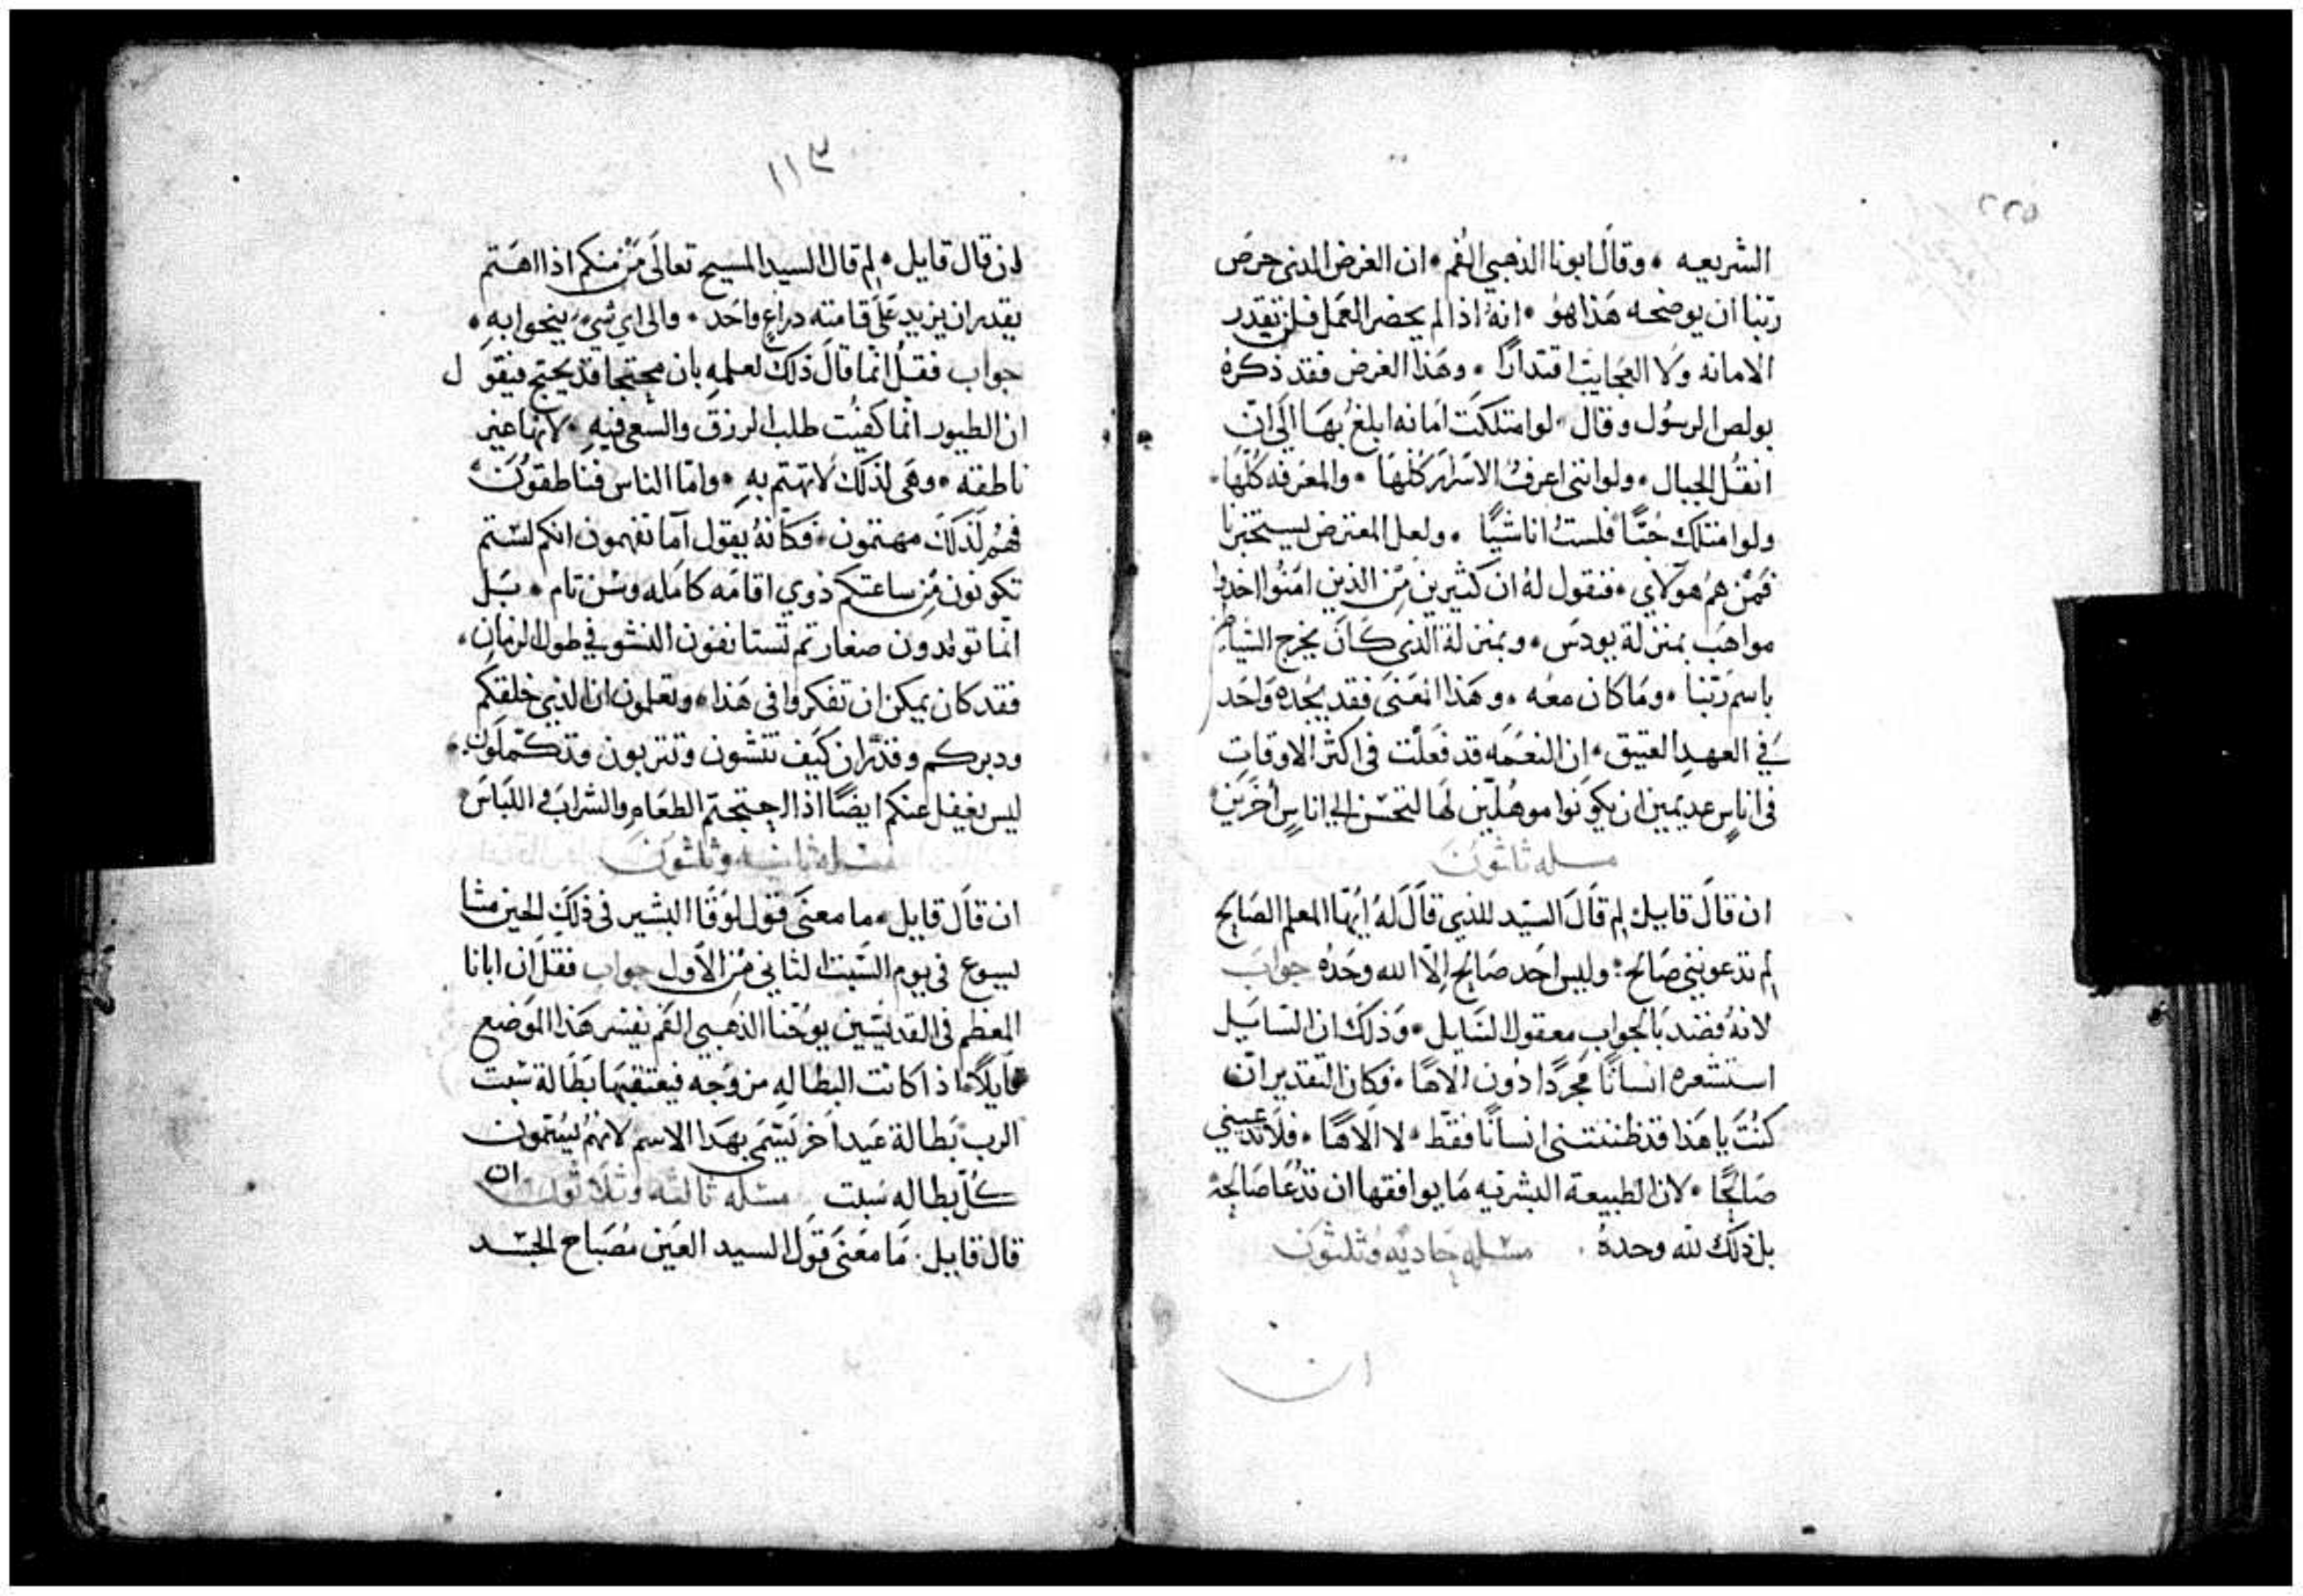 ٢٢٥
الشريعه • وقال ابونا الذهبي الفم • ان الغرض الدى حرص
ربنا ان يوضحه هذا هو • انه اذا لم يحضر العمل فلن تقدر
الامانه ولا العجايب اقتدارًا • وهذا الغرض فقد ذكره
بولص الرسول وقال • لو امتلكت امانه ابلغ بها الى ان
انقل الجبال • ولو اننى اعرف الاسرار كلها • والمعرفه كلها •
ولو امتلك حبًا فلست انا شيًا • ولعل المعترض يستخبرنا
فمن هم هولاي • فنقول له ان كثيرين من الذين امنوا اخدوا
مواهب بمنزلة يودس • وبمنزلة الذى كان يخرج الشياطين
باسم ربنا • وما كان معه • وهذا المعنى فقد يجده واحد
في العهد العتيق • ان النعمه قد فعلت فى اكثر الاوقات
فى اناس عديمين ان يكونوا موهلين لها لتحسن الى اناس اخرين
مسله ثلثون
ان قال قايل لم قال السيد للذي قال له ايها المعلم الصالح
لم تدعوننى صالح • وليس احد صالح الا الله وحده جواب
لانه قصد بالجواب معقول السايل • وذلك ان السايل
استشعره انسانًا مجردًا دون الاها • فكان التقدير ان
كنت يا هذا قد ظننتنى انسانًا فقط • لا الاهًا • فلا تدعيني
صالحًا • لان الطبيعة البشريه ما يوافقها ان تدعا صالحه
بل ذلك لله وحده مسله حاديه وثلثون
ان
١١٣
ان قال قايل • لم قال السيد المسيح تعالى من منكم اذا اهتم
يقدر ان يزيد على قامته دراع واحد • والى اي شيء ينحوا به •
جواب فقل انما قال ذلك لعلمه بان محتجا قد يحتج فيقول
ان الطيور انما كفيت طلب الرزق والسعى فيه • لانها غير
ناطقه • وهى لذلك لا تهتم به • واما الناس فناطقون
فهم لذلك مهتمون • فكانه يقول اما تفهمون انكم لستم
تكونون من ساعتكم ذوي اقامه كامله وسن تام • بل
انما تولدون صغار ثم تستانفون النشو في طول الزمان •
فقد كان يمكن ان تفكروا فى هذا • وتعلمون ان الذي خلقكم
ودبركم وقدر ان كيف تنشون وتتربون وتكملون •
ليس يغفل عنكم ايضًا اذا احتجتم الطعام والشراب و اللباس
مسله ثانيه وثلثون
ان قال قايل • ما معنى قول لوقا البشير فى ذلك الحين مشا
يسوع فى يوم السبت الثانى من الاول جواب فقل ان ابانا
المعظم فى القديسين يوحنا الذهبي الفم يفسر هذا الموضع
قايلاً اذا كانت البطاله مزوجه فيعتقبها بطالة سبت
الرب بطالة عيد اخر يسمى بهذا الاسم لانهم يسمون
كل بطاله سبت مسله ثالثه وثلاثون ان
قال قايل • ما معنى قول السيد العين مصباح الجسد